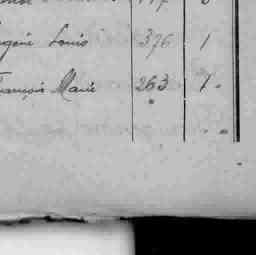 ugène Louis 376 1
rançois Marie 263 7